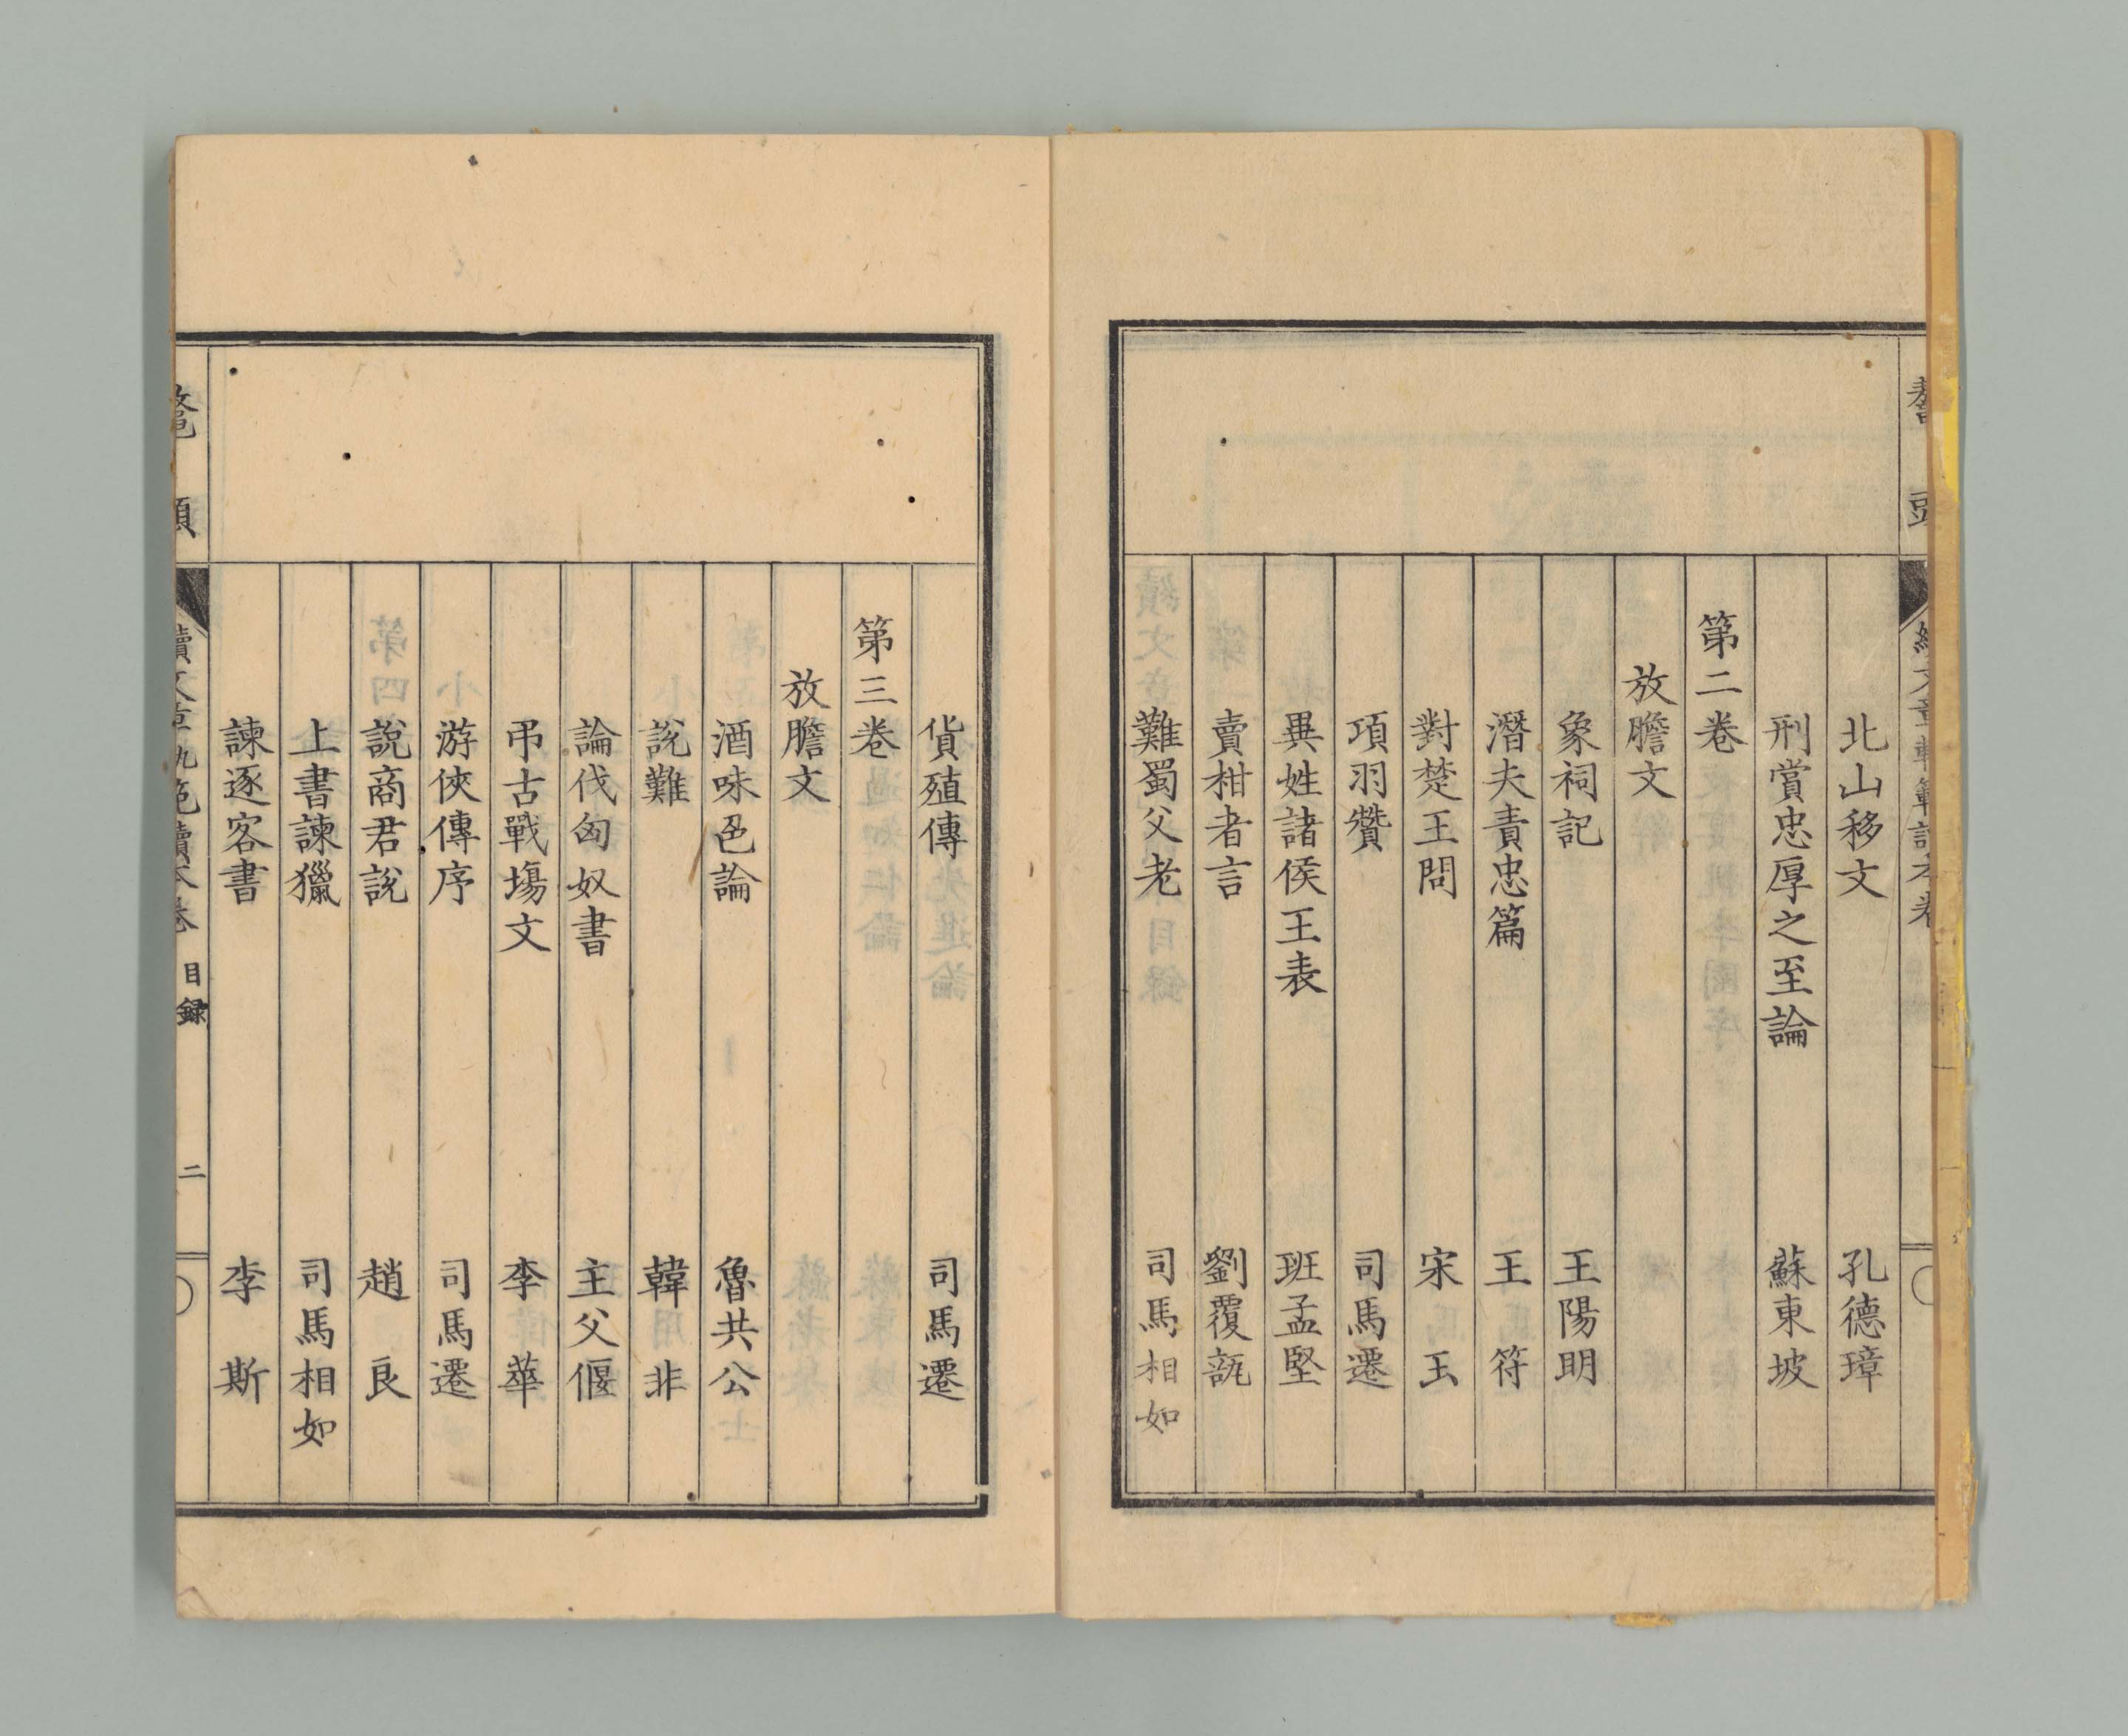 北山移文 孔德璋
刑賞忠厚之至論 蘇東坡
第二卷
放膽文
象祠記 王陽明
潛夫責忠篇 王符
對楚王問 宋玉
項羽贊 司馬遷
異姓諸侯王表 班孟堅
賣柑者言 劉覆瓿
難蜀父老 司馬相如
貨殖傳 司馬遷
第三卷
放膽文
酒味色論 魯共公
說難 韓非
論伐匈奴書 主父偃
弔古戰場文 李華
游俠傳序 司馬遷
說商君說 趙良
上書諫獵 司馬相如
諫逐客書 李斯
目録 二